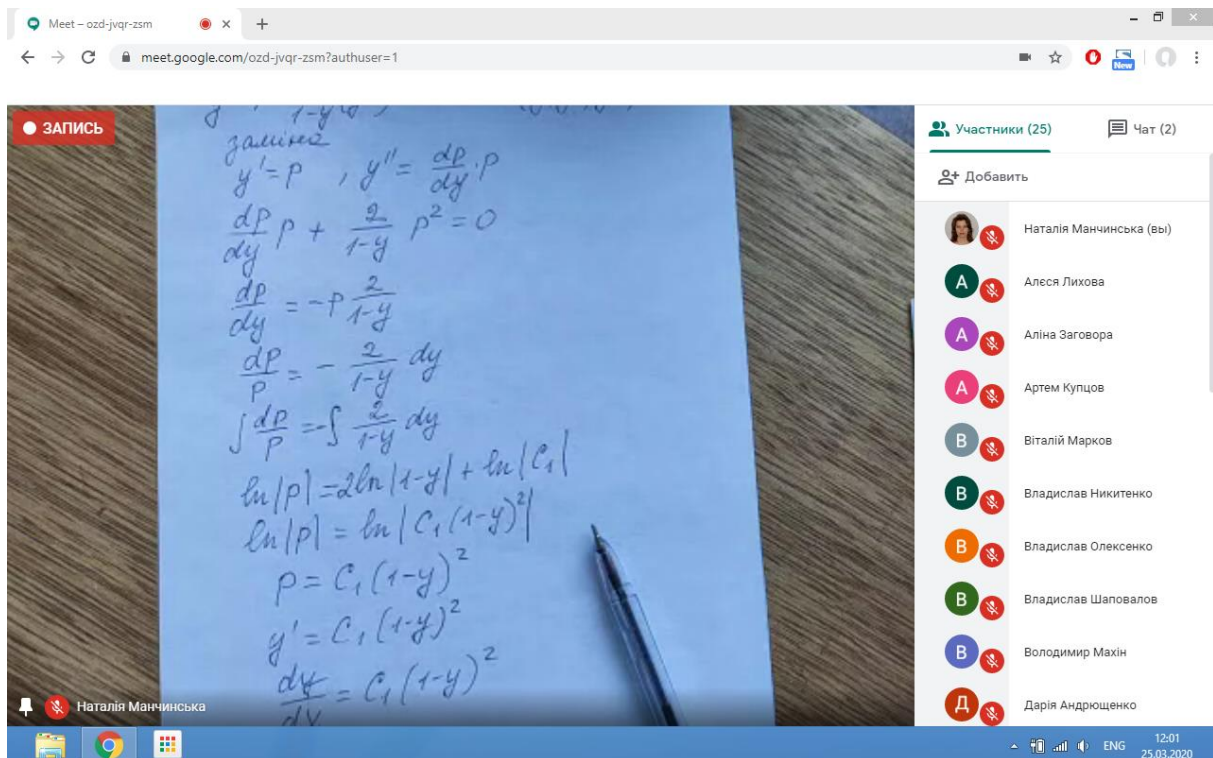 Meet – ozd-jvqr-zsm
meet.google.com/ozd-jvqr-zsm?authuser=1
New
ЗАПИСЬ
1-y
заміна
y' = p , y'' = dp/dy · p
dp/dy p + 2/(1-y) p² = 0
dp/dy = -p 2/(1-y)
dp/p = - 2/(1-y) dy
∫ dp/p = -∫ 2/(1-y) dy
ln|p| = 2ln|1-y| + ln|C₁|
ln|p| = ln|C₁(1-y)²|
p = C₁(1-y)²
y' = C₁(1-y)²
dy/dx = C₁(1-y)²
Наталія Манчинська
Участники (25)
Чат (2)
Добавить
Наталія Манчинська (вы)
А Алєся Лихова
А Аліна Заговора
А Артем Купцов
В Віталій Марков
В Владислав Никитенко
В Владислав Олексенко
В Владислав Шаповалов
В Володимир Махін
Д Дарія Андрющенко
ENG
12:01
25.03.2020